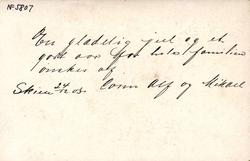 No 5807
En glædelig jul og et
godt aar for hele familien
ønskes af
Skien 24/12 03. Conn Alf og Mikael